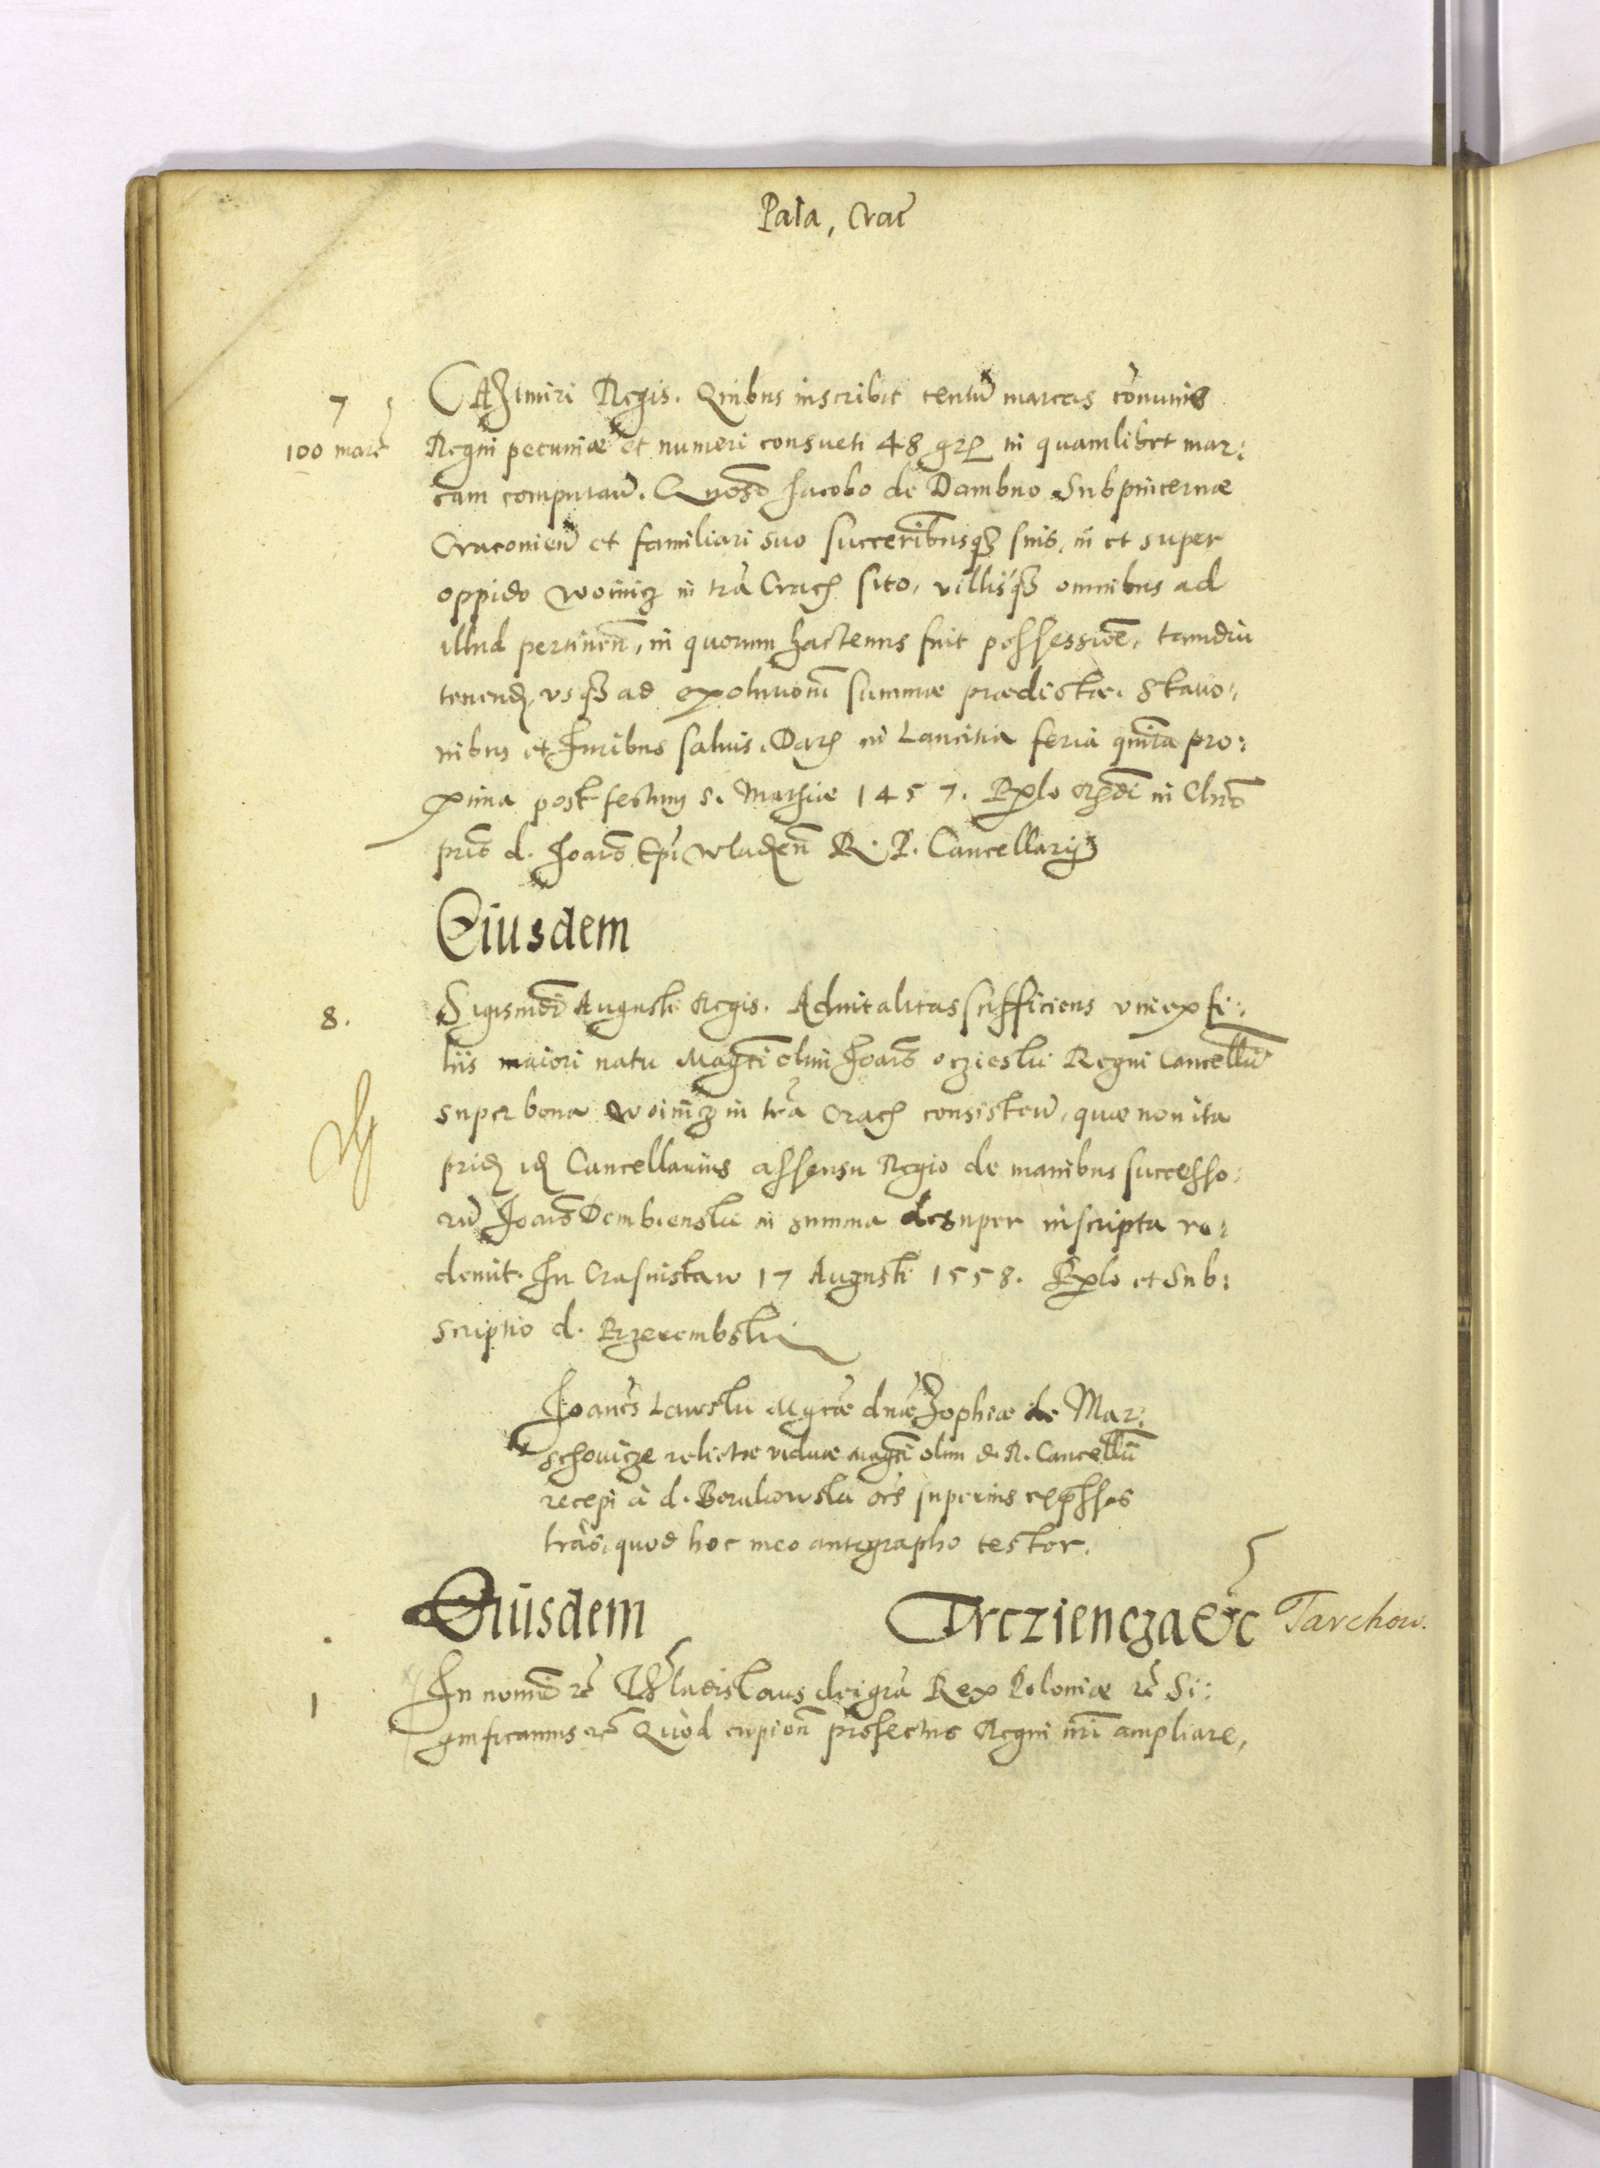 Pala, Crac
7 CAZimiri Regis. Quibus inscribit centū marcas cōmunis
100 marc Regni pecuniæ et numeri consueti 48 gr in quamlibet mar:
cam computan̄. Gnoso Jacobo de Dambno Subpincernæ
Cracovien̄ et familiari suo succeribusqz suis, in et super
oppido Woinicz in trā Crac sito, villisqz omnibus ad
illud pertinen̄, in quorum hactenus fuit possessioē, tamdiu
tenend, vsqz ad exolutionē summæ prædictæ. Statio:
nibus et Iuribus salvis. Dat in Lancitia feria quīta pro:
xima post festum S. Mathiæ 1457. in
d. Joanīs Epi Wladen̄ R. P. Cancellarij
Eiusdem
8. Sigismūdi Augusti Regis. Advitalitas sufficiens vni ex fi:
liis maiori natu Magci olim Joanīs Oczieski Regni Cancellarii
super bona Woinicz in trā Crac consisten̄, quæ non ita
prid id Cancellarius assensu Regio de manibus successo:
rū Joanīs Dembienski in summa desuper inscripta re:
demit. In Crasnistaw 17 Augusti 1558. Rlo et Sub:
scriptio d. Przerembski
Joanēs Lawski Mgcæ dn̄æ Zophiæ de Mar:
schovicze relictæ viduæ magci olim d. R. Cancellarii
recepi à d. superius expssas
lrās, quod hoc meo antigrapho testor.
Eiusdem Trcziencza &c Tarchow.
1 In nomīe rc Wladislaus dei grā Rex Poloniæ rc Si:
gnificamus rc Quòd cupien̄ profectus Regni nr̄i ampliare,